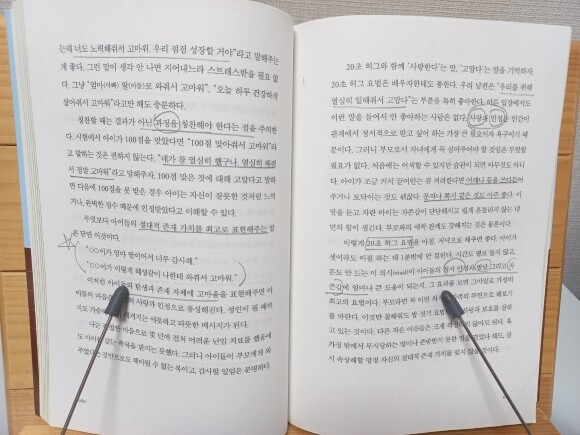 는데 너도 노력해줘서 고마워, 우리 점점 성장할 거야"라고 말해주는
게 좋다. 그런 말이 생각 안 나면 지어내느라 스트레스받을 필요 없
다. 그냥 "엄마(아빠) 딸(아들)로 와줘서 고마워", "오늘 하루 건강하게
살아줘서 고마워"라고만 해도 충분하다.
칭찬할 때는 결과가 아닌 과정을 칭찬해야 한다는 점을 주의한
다. 시험에서 아이가 100점을 맞았다면 "100점 맞아줘서 고마워"라
고 말하는 것은 권하지 않는다. "네가 참 열심히 했구나, 열심히 해줘
서 정말 고마워"라고 말해주자. 100점 맞은 것에 대해 고맙다고 말하
면 다음에 100점을 못 받은 경우 아이는 자신이 잘못한 것처럼 느끼
거나, 완벽한 점수 때문에 인정받았다고 이해할 수 있다.
무엇보다 아이들의 절대적 존재 가치를 최고로 표현해주는 방
은 단연 이것이다.
"○○이가 엄마 딸이어서 너무 감사해."
"○○이가 이렇게 해살같이 나한테 와줘서 고마워."
이처럼 아이들의 탄생과 존재 자체에 고마움을 표현해주면 아
이들의 마음 사랑과 인정으로 풍성해진다. 성인이 될 때까
지도 가슴 새겨지는 따뜻하고 따끔한 메시지가 된다.
나는 절절한 마음으로 몇 년에 걸쳐 어려운 난임 치료를 했음에
도 아이를 갖는 축복을 받지는 못했다. 그러니 아이들이 부모에게 와
주었다는 것만으로도 헤아릴 수 없는 복이고, 감사할 일임은 분명하다.
20초 허그와 함께 '사랑한다'는 말, '고맙다'는 말을 기억하자.
20초 허그 요법은 배우자한테도 통한다. 우리 남편은 "우리를 위해
열심히 일해줘서 고맙다"는 부분을 특히 좋아한다. 어른 입장에서도
이런 말을 들어서 안 좋아하는 사람은 없다. 사랑과 인정은 인간이
관계에서 정서적으로 받고 싶어 하는 가장 큰 필요이자 욕구이기 때
문이다. 그러니 부모로서 자녀에게 꼭 심어주어야 할 것임은 두말할
필요가 없다. 처음에는 어색할 수 있지만 습관이 되면 아무것도 아니
다. 아이가 조금 커서 끌어안는 걸 꺼려한다면 어깨나 등을 쓰다듬어
주거나 토닥이는 것도 괜찮다. 문자나 쪽지 같은 것도 아주 좋다. 이
말을 듣고 자란 아이는 자존감이 단단해지고 쉽게 흔들리지 않는 내
면의 힘이 생긴다. 부모와의 애착 관계도 강해지는 것은 당연하다.
이렇게 20초 허그 요법을 아침, 저녁으로 해주면 좋다. 아이가
셋이라도 이걸 하는 데 1분밖에 안 걸린다. 시간도 별로 들지 않고
돈도 안 드는 이 의식(ritual)이 아이들의 정서 안정과 발달 그리고 자
존감에 얼마나 큰 도움이 되는지, 그 효과를 보면 그야말로 가성비
최고의 요법이다. 부모라면 꼭 이런 무한으로 해보기
를 바란다. 이것만 잘해줘도 밤 사랑과 보호를 갈아
고 있는 것이다. 다른 작은 이슈들은 크게 걱정하지 않아도 된다. 혹
가정 밖에서 무시당하는 말이나 존중받지 못한 말을 들었다 해도, 잠
시 속상해할 망정 자신의 절대적 존재 가치를 잊지 않을 것이다.